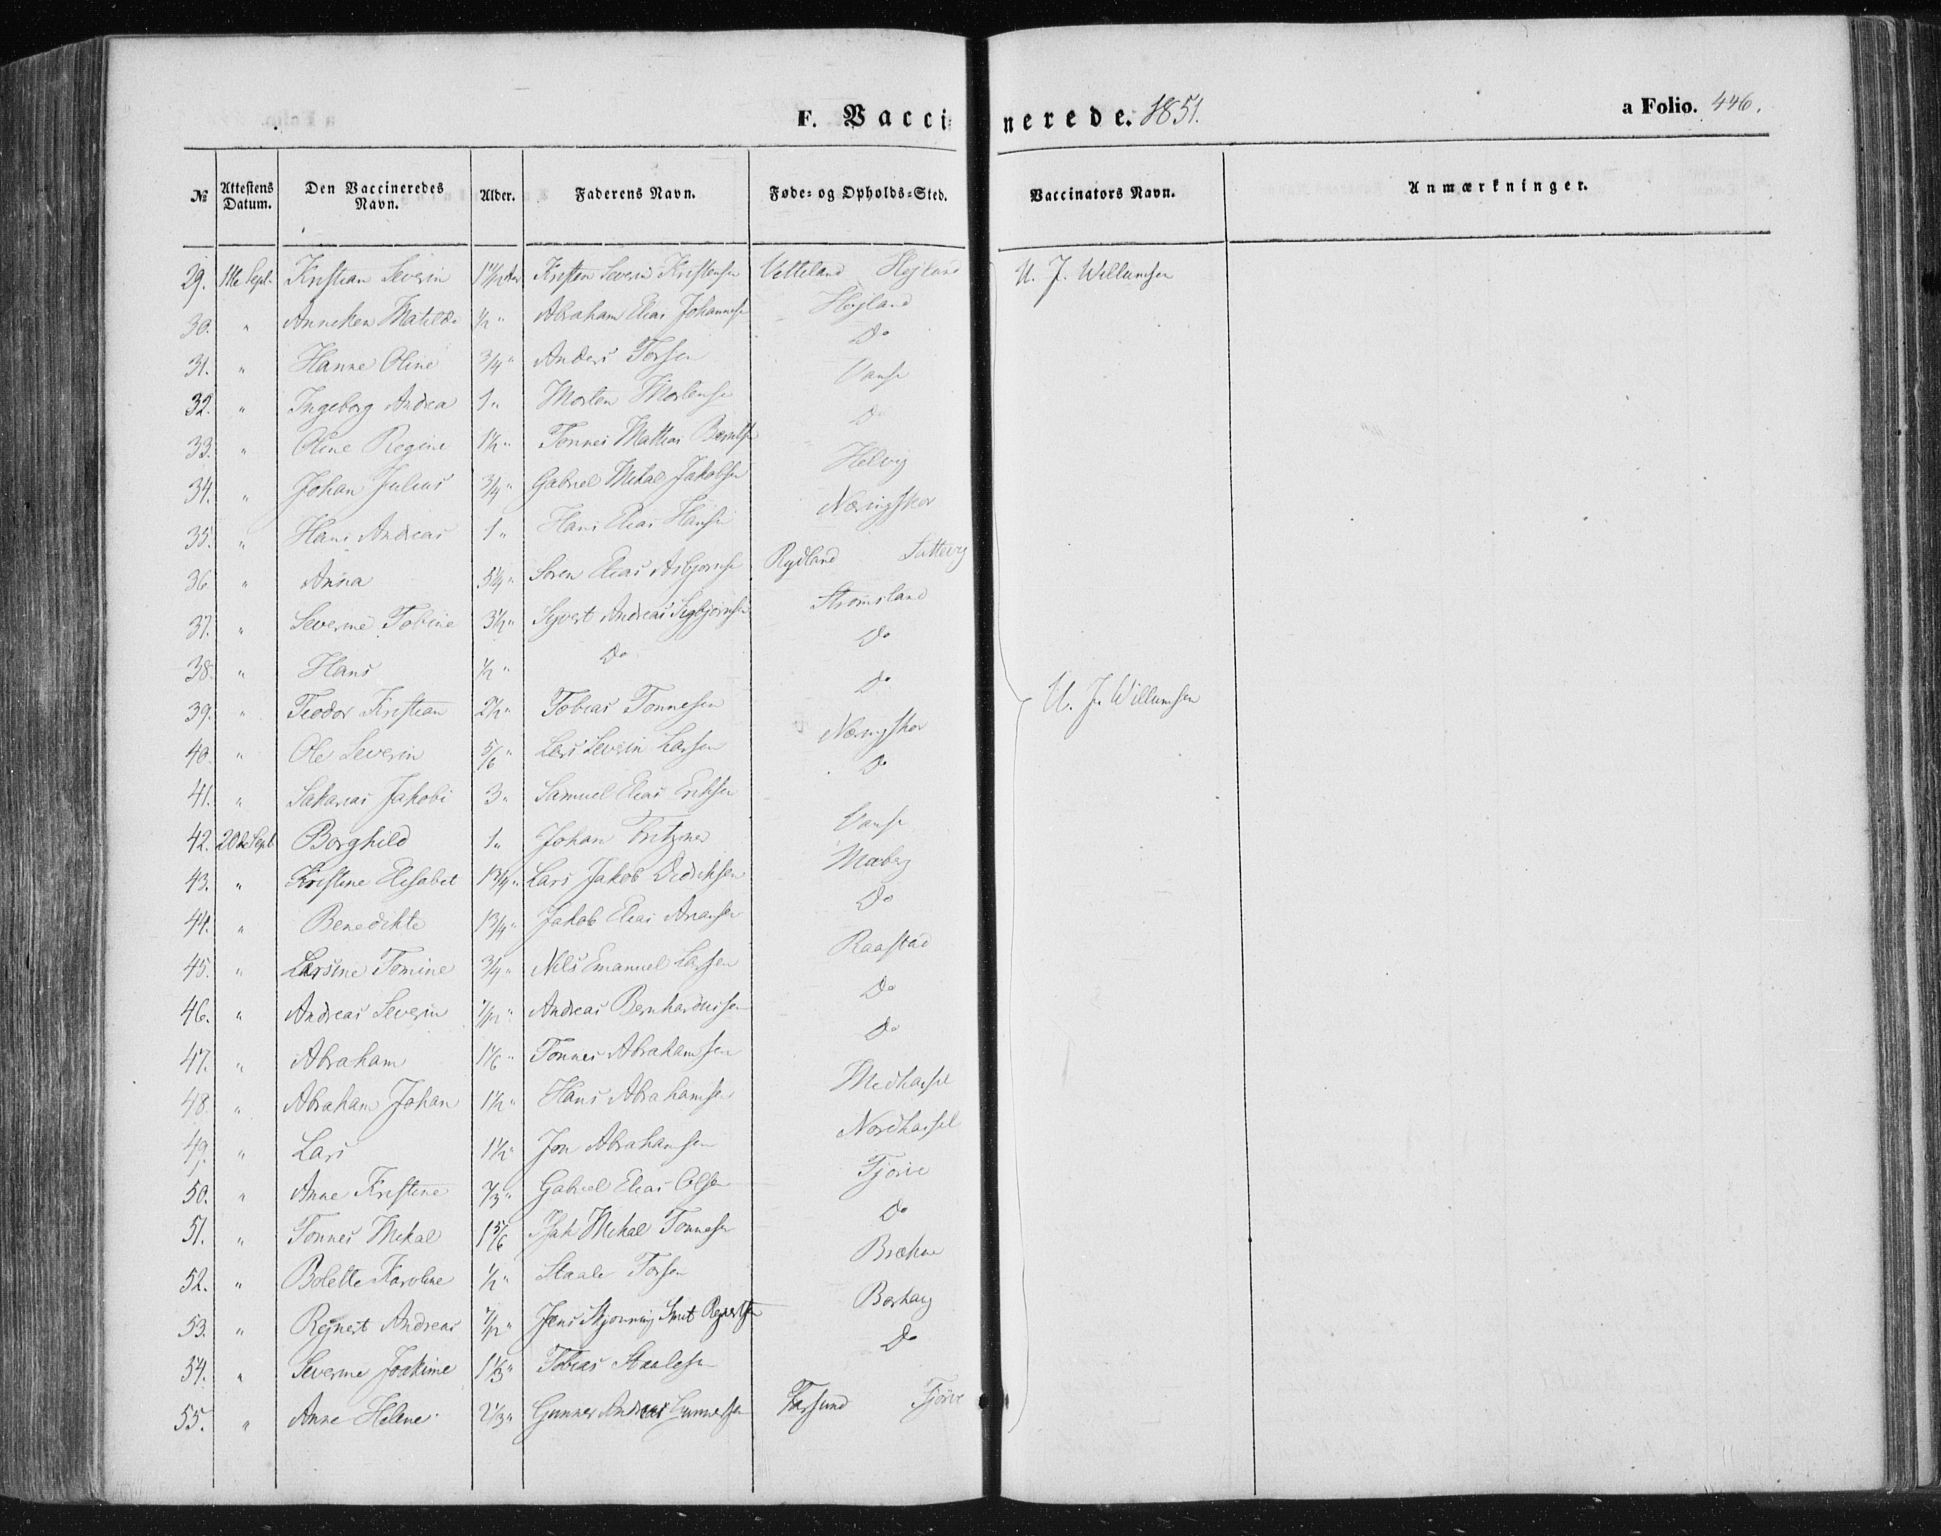 F. Vaccinerede. 1851. a Folio. 446.
№ Attestens Datum. Den Vaccineredes Navn. Alder. Faderens Navn. Føde- og Opholds-Sted. Vaccinators Navn. Anmærkninger.
29. Sept. Kristian Severin Kristen Severin Kristensen Vetteland Højland U. J. Willumsen
30. " Anneken Matilde ½ " Abraham Elias Johannesen Højland
31. " Hanne Oline ¾ " Anders Torsen Do
32. " Ingeborg Andrea 1 " Morten Mortensen Vanse
33. " Oline Regine 1½ " Tønnes Mathias Berntsen Do
34. " Johan Julius ¾ " Gabriel Mikal Jakobsen Helvig
35. " Hans Andreas 1 " Hans Elias Hansen Næringskor
36 " Anna 5¼ " Søren Elias Asbjørnsen Rydland
37. " Severine Tobine 3½ " Syvert Andreas Sigbjørnsen Strømsland
38. " Hans ½ " Do Do
39. " Teodor Kristian 2½ " Tobias Tønnesen Do U. J. Willumsen
40. " Ole Severin 5/6 " Lars Severin Larsen Næringskor
41. " Sakarias Jakobi 3 " Samuel Elias Eriksen Do
42. 20de Sept Borghild 1 " Johan Fritzner Vanse
43. " Kristine Elisabet 1¾ " Lars Jakob Didriksen Maberg
44. " Benedikte 1¾ " Jakob Elias Aransen Do
45. " Larsine Tomine ¾ " Nils Emanuel Larsen Raastad
46. " Andreas Severin 7/12 " Andreas Bernhardussen Do
47. " Abraham 1 1/6 " Tønnes Abrahamsen Do
48. " Abraham Johan 1½ " Hans Abrahamsen Medhassel
49. " Lars 1½ " Jon Abrahamsen Nordhassel
50. " Anne Kristine Gabriel Elias Olsen Tjørve
51. " Tønnes Mikal 1 5/6 Isak Mikal Tønnesen Do
52. " Bolette Karoline ½ " Staale Torsen Brække
53. " Rejnert Andreas 7/12 " Jens Skjønning Smit Rejnertsen Borhaug
54. " Severine Joakime 1⅓ " Tobias Staalesen Do
55. " Anne Helene 2⅓ " Gunner Andreas Gunnersen Farsund Tjørve